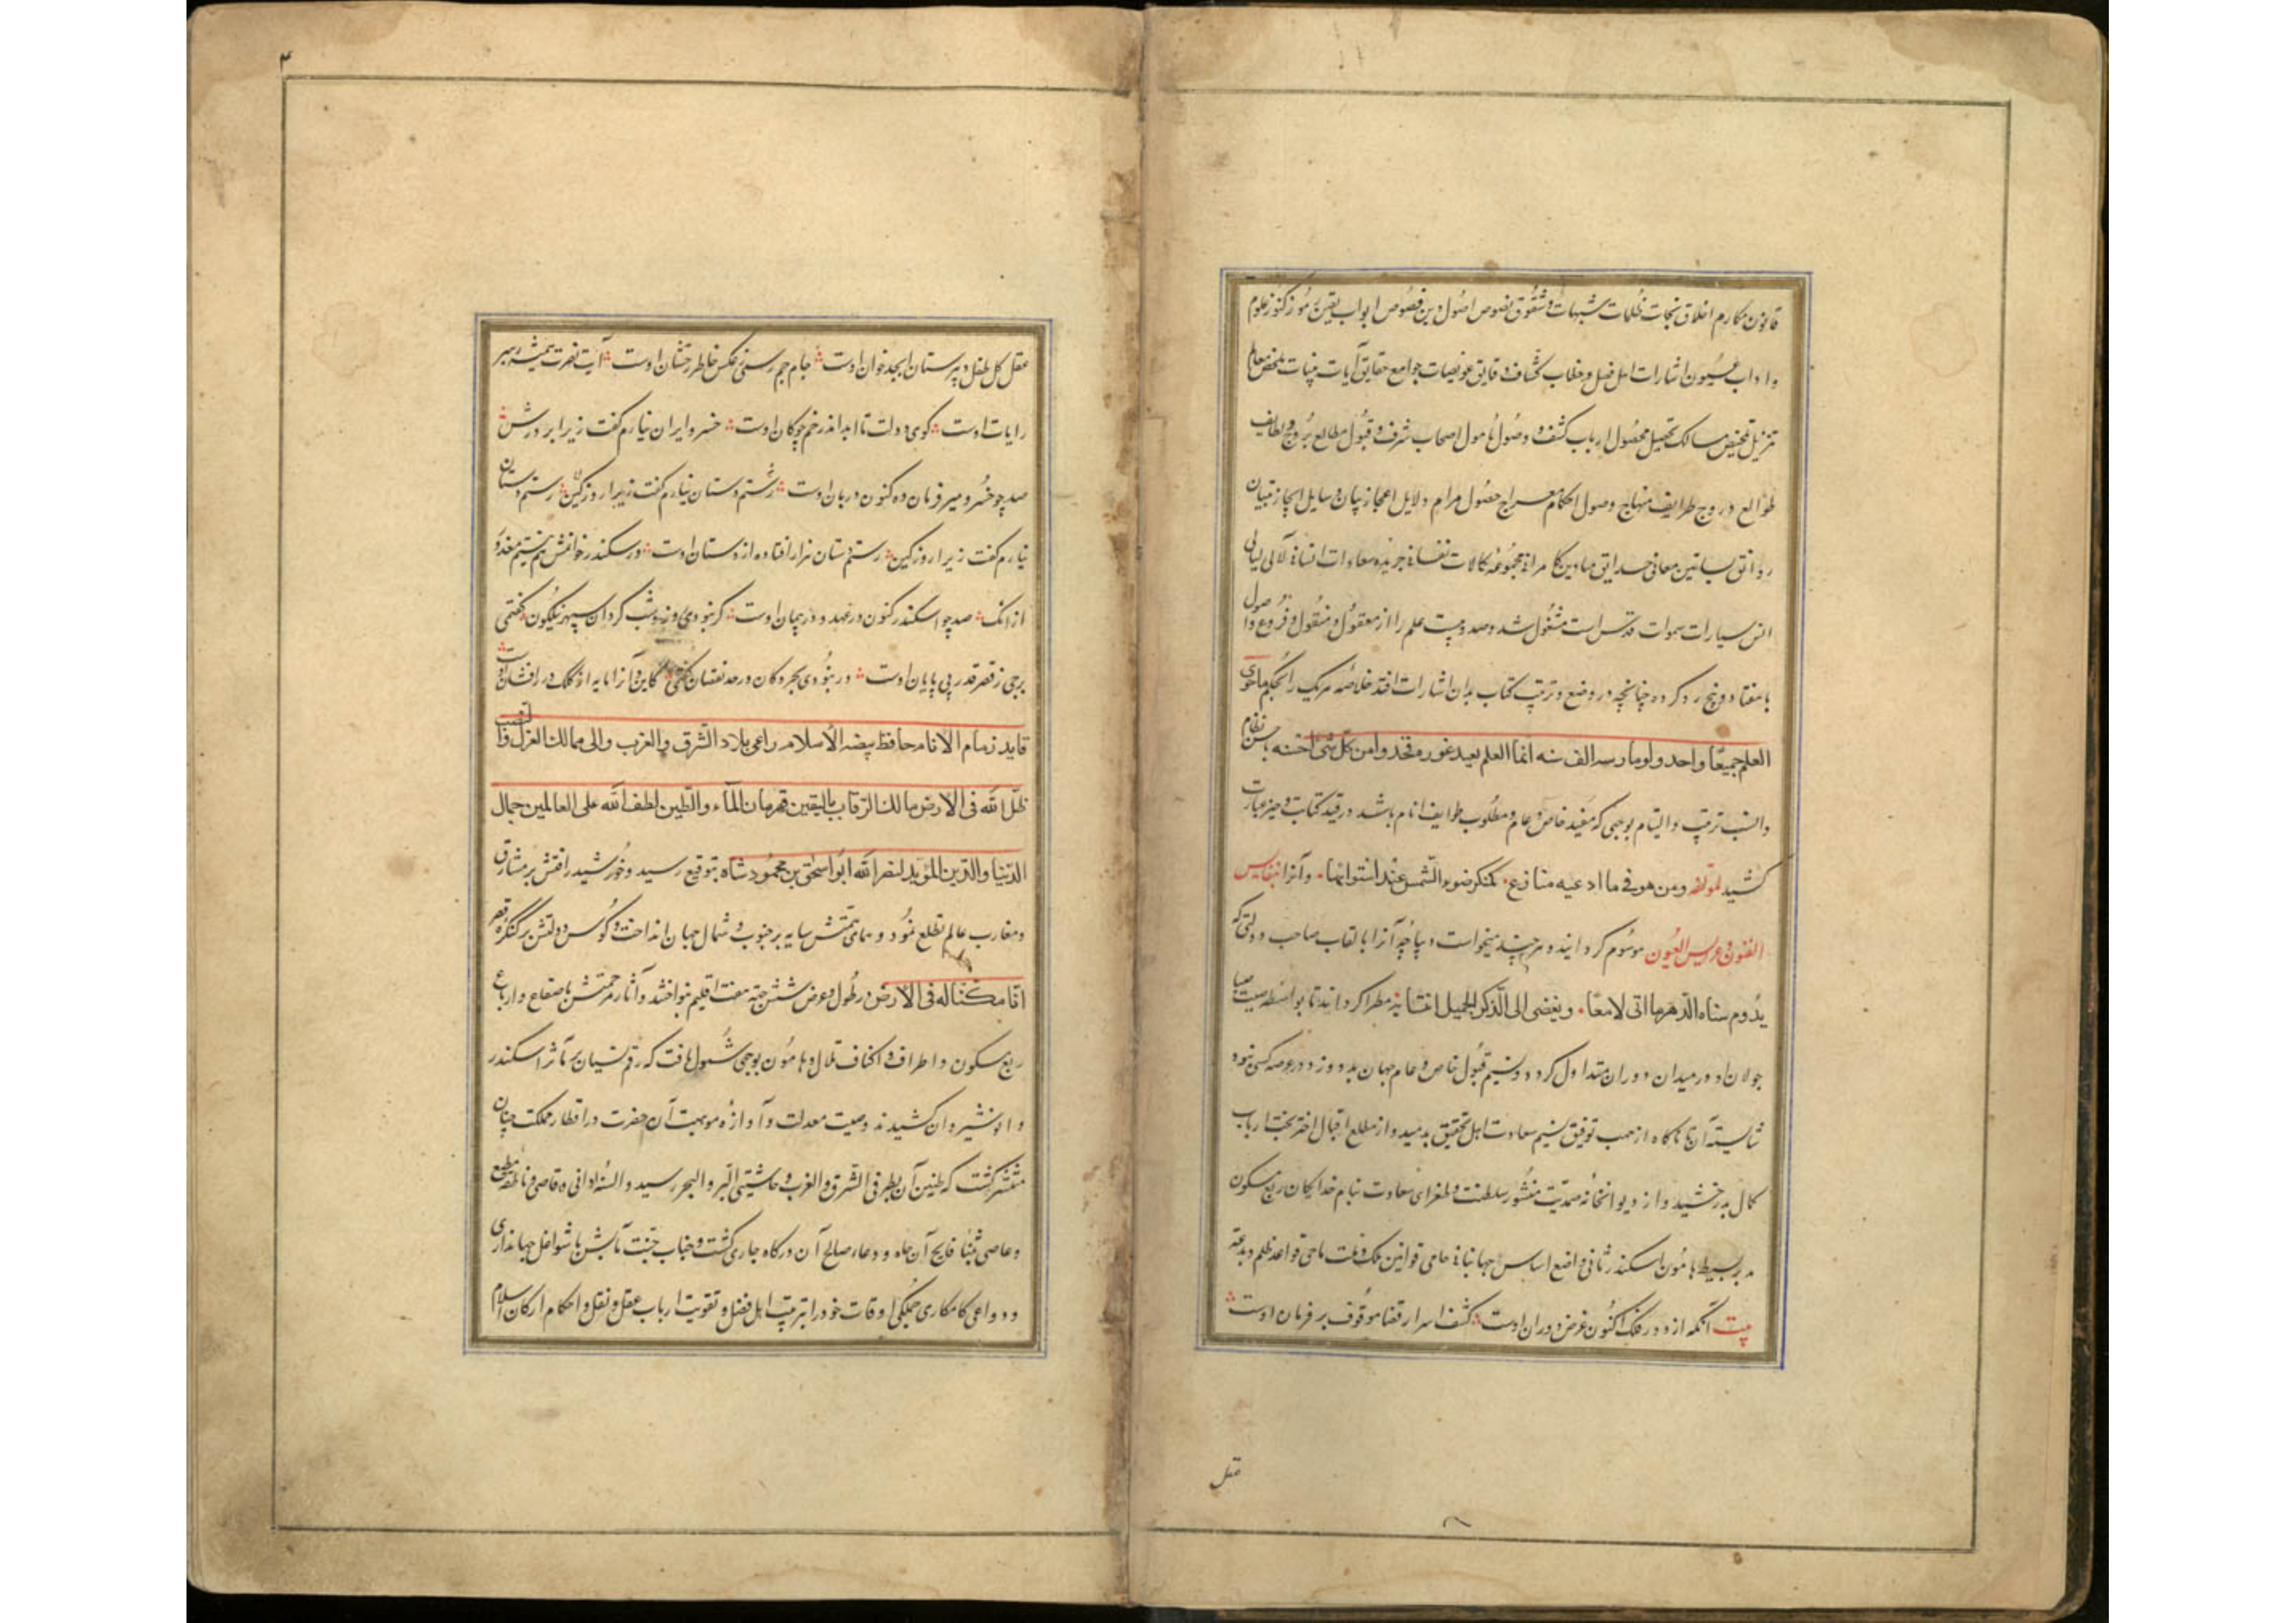 قانون مکارم اخلاق نجات ظلمات شبهات و شقوق نصوص اصول دین فصوص ابواب یقین رموز کنوز علوم
و اداب عیون اشارات اهل فضل و خطاب کشاف دقایق عویصات جوامع حقایق آیات بینات ملخص معالم
تنزیل تلخیص مسالک تحصیل محصول ارباب کشف و وصول مامول اصحاب شرف و قبول مطالع بروج و لطایف
طوالع دروج طرایف منهاج وصول احکام معراج حصول مرام دلایل اعجاز بیان وسایل ایجاز تبیان
روانق بساتین معانی حدایق میادین کامرانی مجموعه کمالات نفسانی جریده سعادات انسانی لآلی لیالی
انس سیارات سموات قدس است مشغول شد و صد و بیست علم را از معقول و منقول و فروع و اصول
با هفتاد و پنج رد کرده چنانچه در وضع و ترتیب کتاب بدان اشارات افتد خلاصه هر یک را بحکم ما حوی
العلم جمیعا واحد ولو مارسه الف سنه انما العلم بعید غوره فخذوا من کل شئ احسنه باحسن نظام
و انسب ترتیب و التیام بوجهی که مفید خاص و عام و مطلوب طوایف انام باشد در قید کتابت و حیز عبارت
کشید لمؤلفه ومن هو فی ما ادعیه منازع کمنکر ضوء الشمس عند استوائها و آنرا بنفایس
الفنون و عرایس العیون موسوم گردانید و هر چند میخواست دیباچه آنرا بالقاب صاحب دولتی که
یدوم سناه الدهر ما اتی لامعا ویفضی الی الذکر الجمیل مطرا گرداند تا بواسطه صیت صبا
جولان او در میدان دوران متداول گردد و نسیم قبول خاص و عام جهان بدو وزد در عرصه کسی نبود
شایسته آن تا ناگاه از مهب توفیق نسیم سعادت اهل تحقیق بدمید و از مطلع اقبال اختر بخت ارباب
کمال بدرخشید و از دیوانخانه صمدیت منشور سلطنت و طغرای سعادت بنام خدایگان ربع مسکون
بر بسیط هامون اسکندر ثانی واضع اساس جهانبانی حامی قوانین ملک و ملت ماحی قواعد ظلم و بدعت
بیت آنکه از دور فلک اکنون غرض دوران اوست کشف اسرار قضا موقوف بر فرمان اوست
عقل
عقل کل طفل دبیرستان ابجد خوان اوست جام جم رسمی ز عکس خاطر رخشان اوست آیت نصرت همیشه رهبر
رایات اوست گوی دولت تا ابد اندر خم چوگان اوست خسرو ایران نیارم گفت زیرا بر درش
صد چو خسرو میر فرمان ده کنون دربان اوست رستم دستان نیارم گفت زیرا روز کین رستم دستان
نیارم گفت زیرا روز کین رستم دستان هزار افتاده از دستان اوست ور سکندر خوانمش هم نیستم معذور
از انک صد چو اسکندر کنون در عهد و در پیمان اوست گر نبودی روز و شب گردان سپهر نیلگون گفتمی
برجی ز قصر قدر بی پایان اوست ور نبودی بحر و کان در حد نقصان گفتمی کاین و آنرا مایه از کلک در افشان اوست
قاید زمام الانام حافظ بیضه الاسلام راعی بلاد الشرق والغرب والی ممالک العزل والنصب
ظل الله فی الارض مالک الرقاب بالیقین قهرمان الماء والطین لطف الله علی العالمین جمال
الدنیا والدین المؤید لنصر الله ابو اسحق بن محمود شاه بتوقیع رسید و خورشید رافتش بر مشارق
و مغارب عالم تطلع نمود و همای همتش سایه بر جنوب و شمال جهان انداخت و کوس دولتش بر کنگره قصر
انا مکنا له فی الارض در طول و عرض شش جهت هفت اقلیم بنواختند و آثار مرحمتش باصقاع و ارباع
ربع مسکون و اطراف و اکناف تلال و هامون بوجهی شمول یافت که رقم نسیان بر مآثر اسکندر
و انوشیروان کشیدند و صیت معدلت و آوازه موهبت آن حضرت در اقطار مملکت چنان
منتشر گشت که طنین آن بطرفی الشرق والغرب و حاشیتی البر والبحر رسید و السنه ادانی و اقاصی و ناطقه مطیع
و عاصی بثنا فایح آن جاه و دعاء صالح آن درگاه جاری گشت و جناب جنت مآبش با شواغل جهانداری
و دواعی کامکاری جملگی اوقات خود را بتربیت اهل فضل و تقویت ارباب عقل و نقل و احکام ارکان اسلام